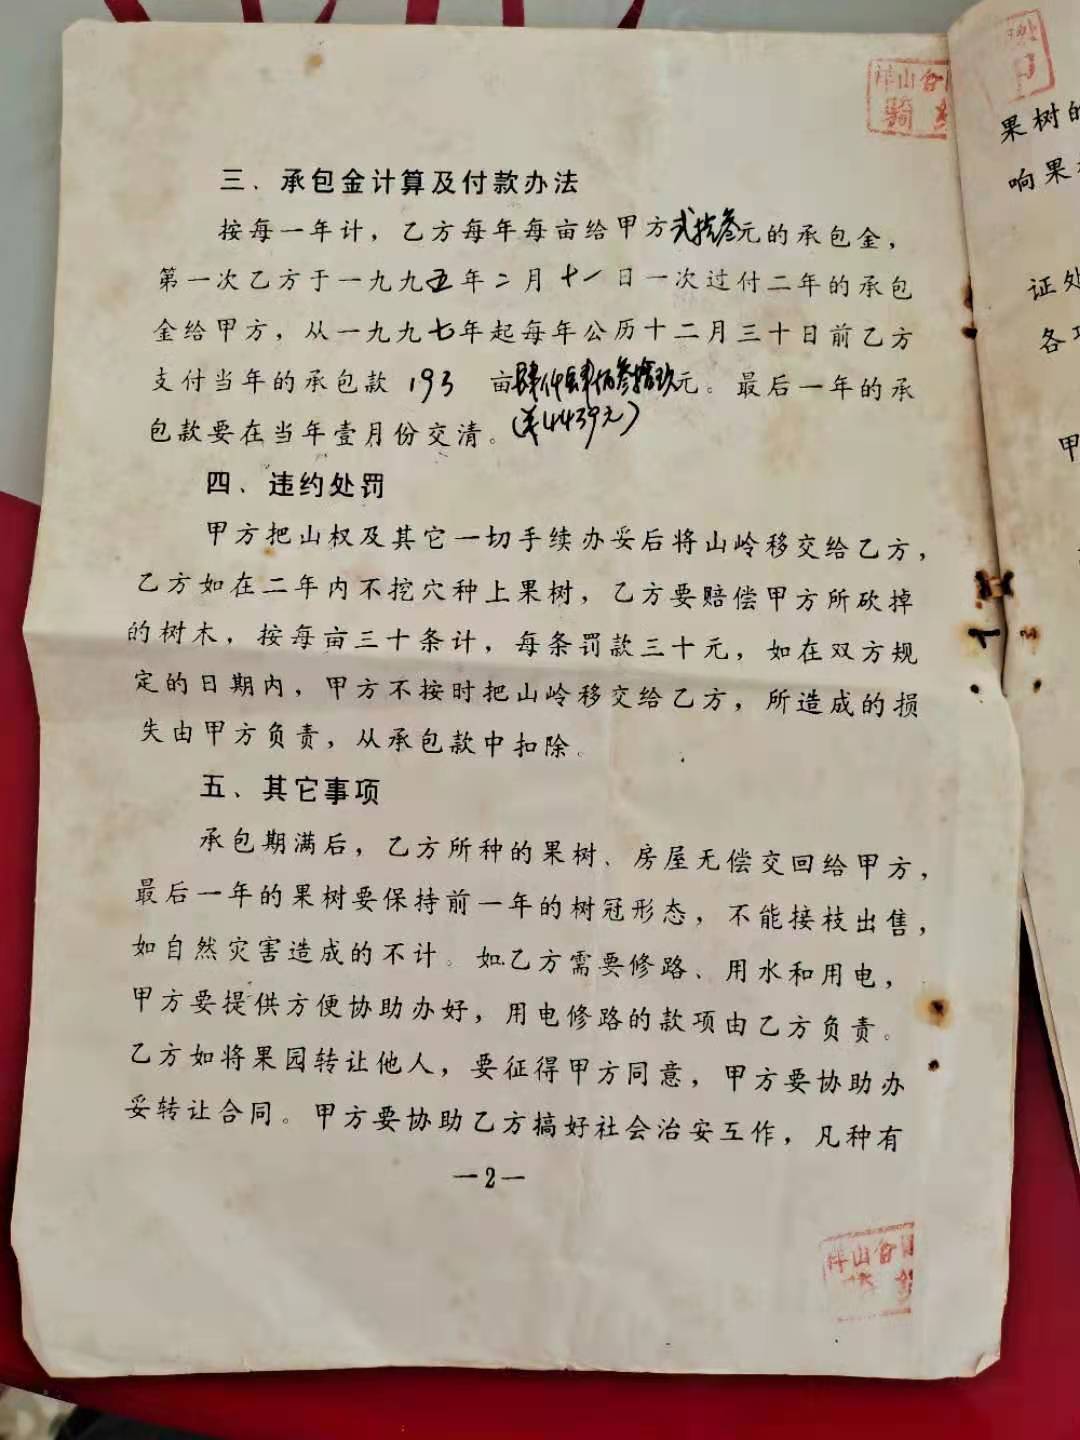 三、承包金计算及付款办法
按每一年计，乙方每年每亩给甲方贰拾叁元的承包金，
第一次乙方于一九九五年二月十一日一次过付二年的承包
金给甲方，从一九九七年起每年公历十二月三十日前乙方
支付当年的承包款 193 亩肆仟肆佰叁拾玖元。最后一年的承
包款要在当年壹月份交清。
(￥4439元)
四、违约处罚
甲方把山权及其它一切手续办妥后将山岭移交给乙方，
乙方如在二年内不挖穴种上果树，乙方要赔偿甲方所砍掉
的树木，按每亩三十条计，每条罚款三十元，如在双方规
定的日期内，甲方不按时把山岭移交给乙方，所造成的损
失由甲方负责，从承包款中扣除。
五、其它事项
承包期满后，乙方所种的果树、房屋无偿交回给甲方，
最后一年的果树要保持前一年的树冠形态，不能接枝出售，
如自然灾害造成的不计。如乙方需要修路、用水和用电，
甲方要提供方便协助办好，用电修路的款项由乙方负责。
乙方如将果园转让他人，要征得甲方同意，甲方要协助办
妥转让合同。甲方要协助乙方搞好社会治安工作，凡种有
—2—
果树的
响果
证处
各项
甲